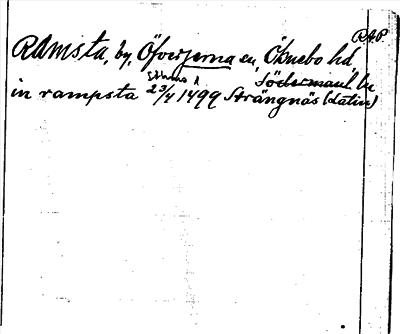 RAP.
Ramsta, by, Öfverjerna sn, Öknebo hd,
Sthms l. Södermanl. län
in rampsta 23/4 1499 Strängnäs (latin)